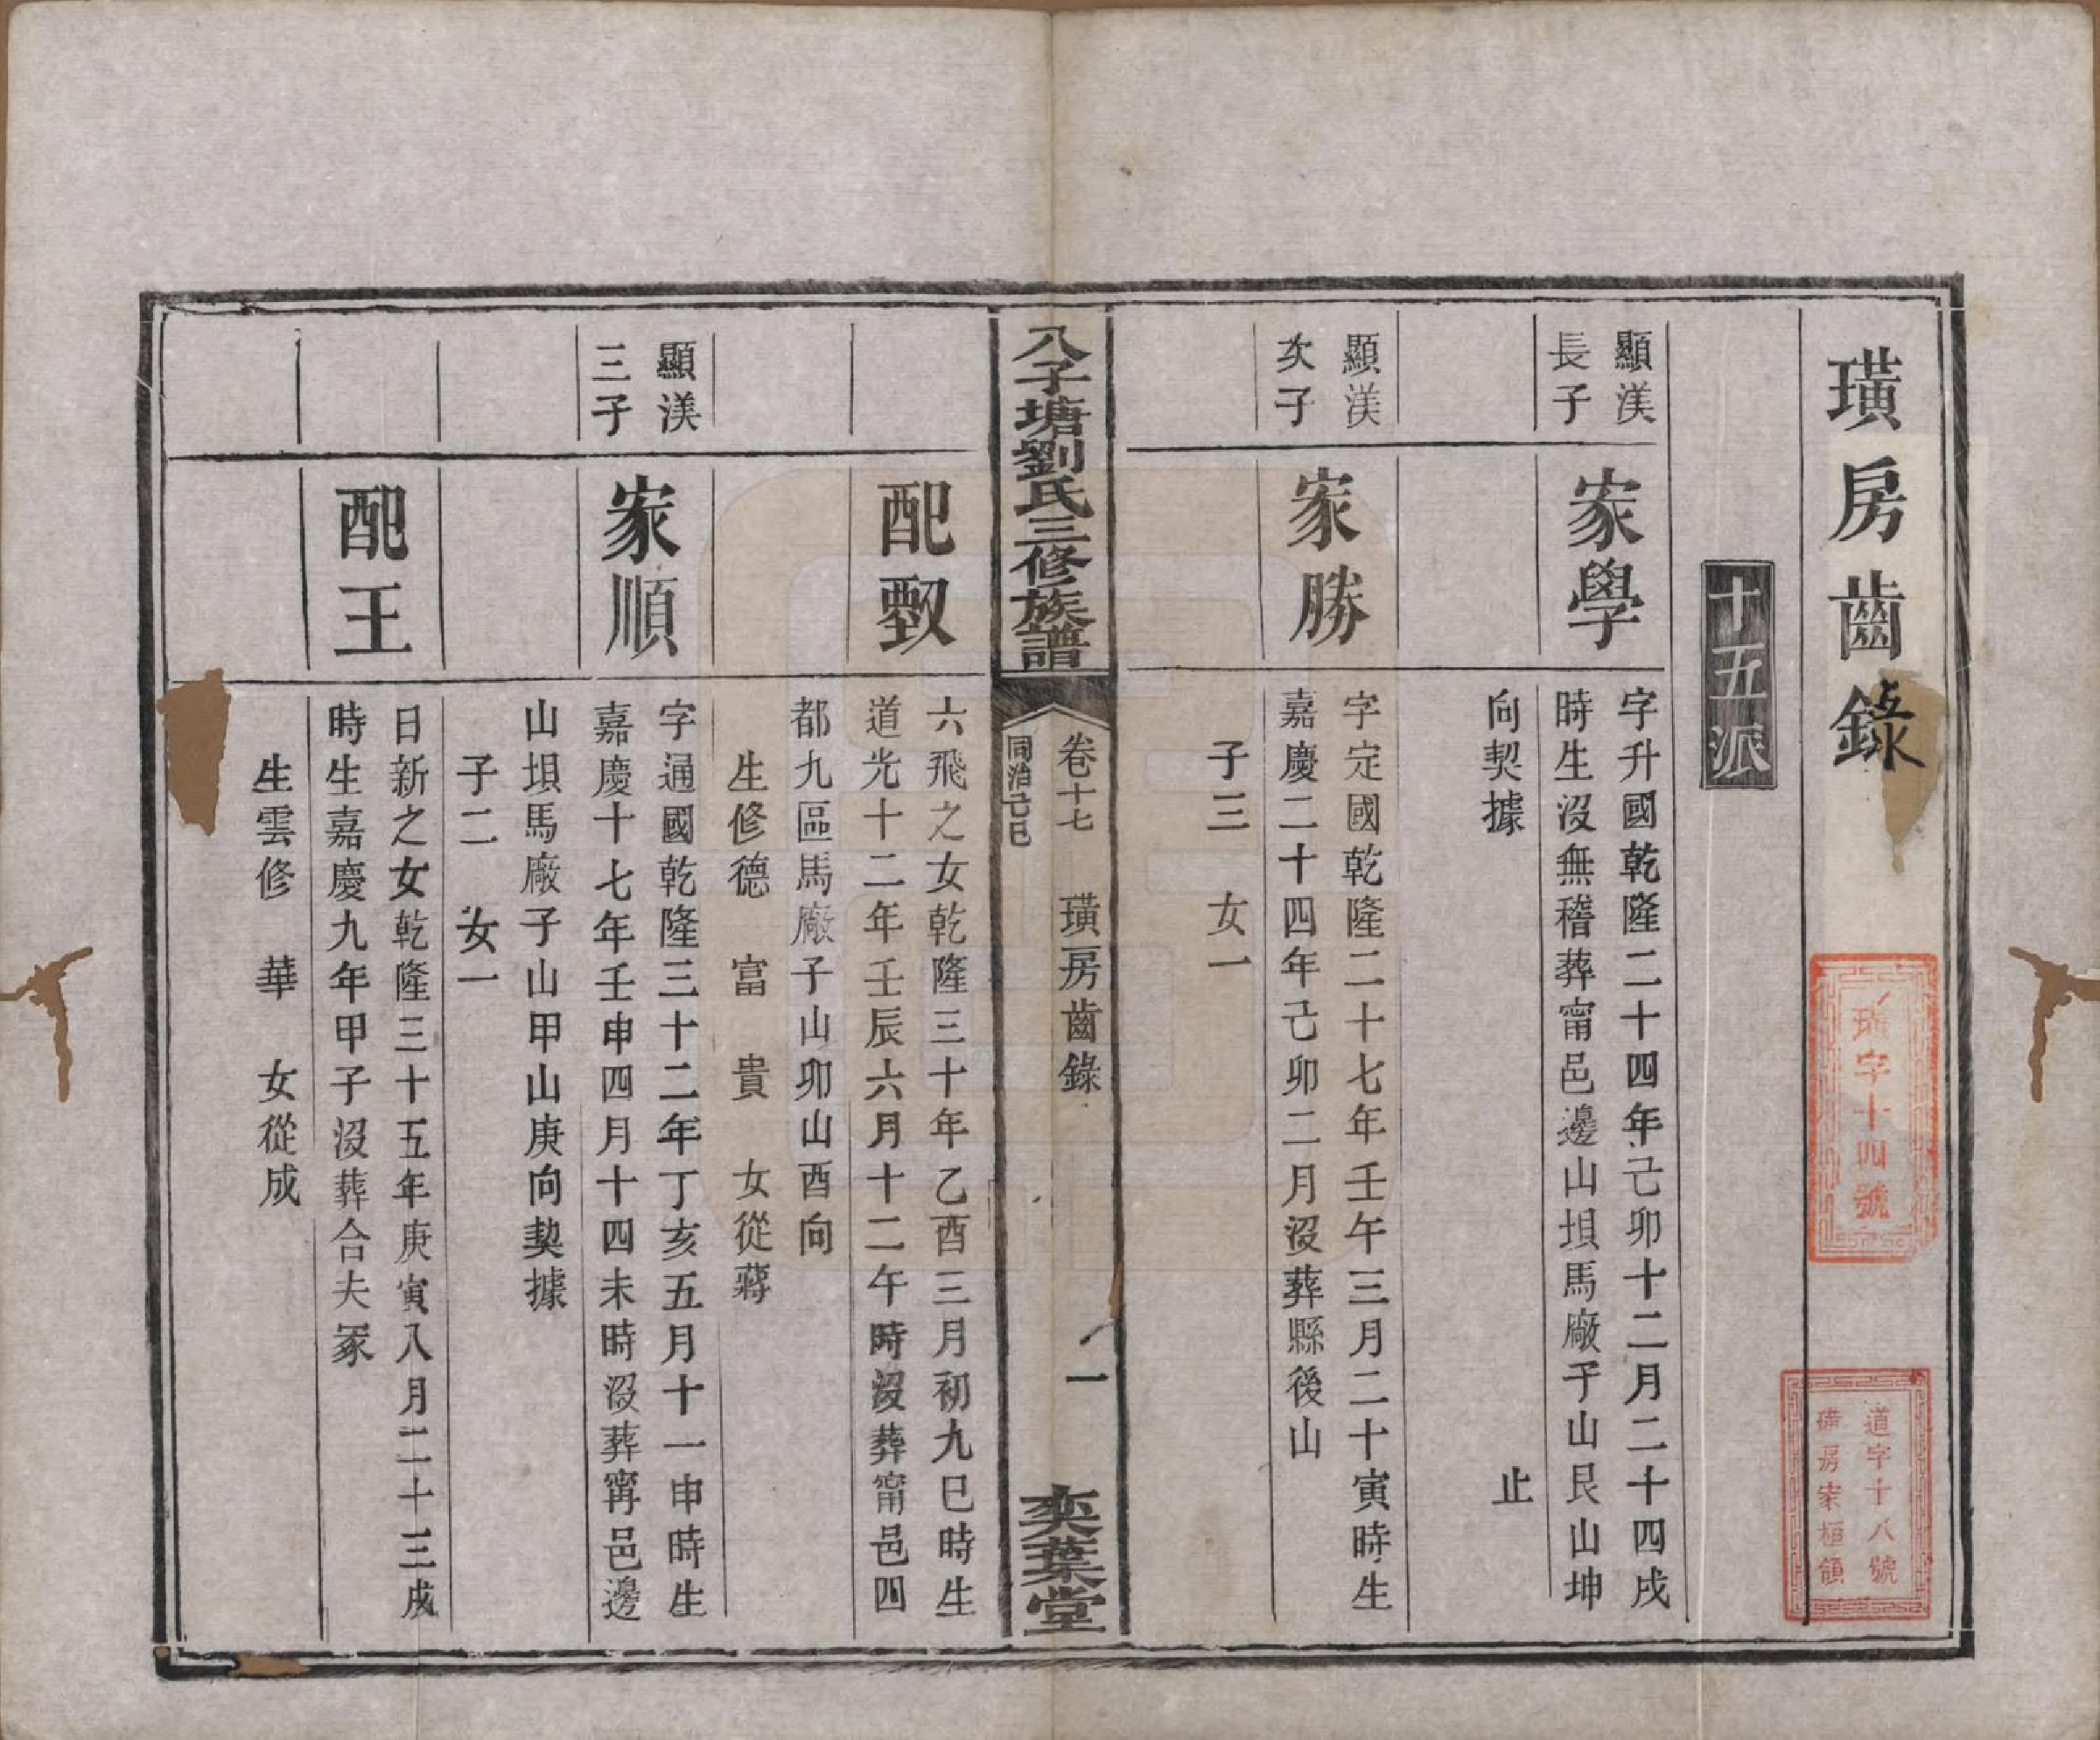 璜房齒錄
十五派
顯渼
長子
家學
字升國乾隆二十四年己卯十二月二十四戌
時生沒無稽葬甯邑邊山垻馬廠子山艮山坤
向契據　止
顯渼
次子
家勝
字定國乾隆二十七年壬午三月二十寅時生
嘉慶二十四年己卯二月沒葬縣後山
子三　女一
八子塘劉氏三修族譜
卷十七　璜房齒錄　一
同治己巳
奕葉堂
配㪟
六飛之女乾隆三十年乙酉三月初九巳時生
道光十二年壬辰六月十二午時沒葬甯邑四
都九區馬廠子山卯山酉向
生修德　富　貴　女從蔣
顯渼
三子
家順
字通國乾隆三十二年丁亥五月十一申時生
嘉慶十七年壬申四月十四未時沒葬甯邑邊
山垻馬廠子山甲山庚向契據
子二　女一
配王
日新之女乾隆三十五年庚寅八月二十三戌
時生嘉慶九年甲子沒葬合夫冢
生雲修　華　女從成
字十四號
道字十八號
璜房家桓領